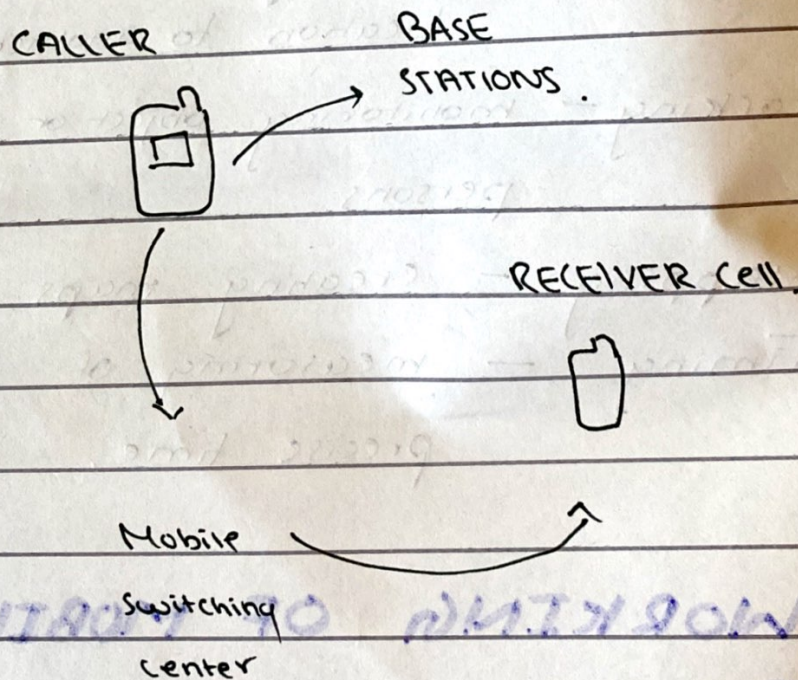 CALLER
BASE
STATIONS.
RECEIVER Cell.
Mobile
switching
center